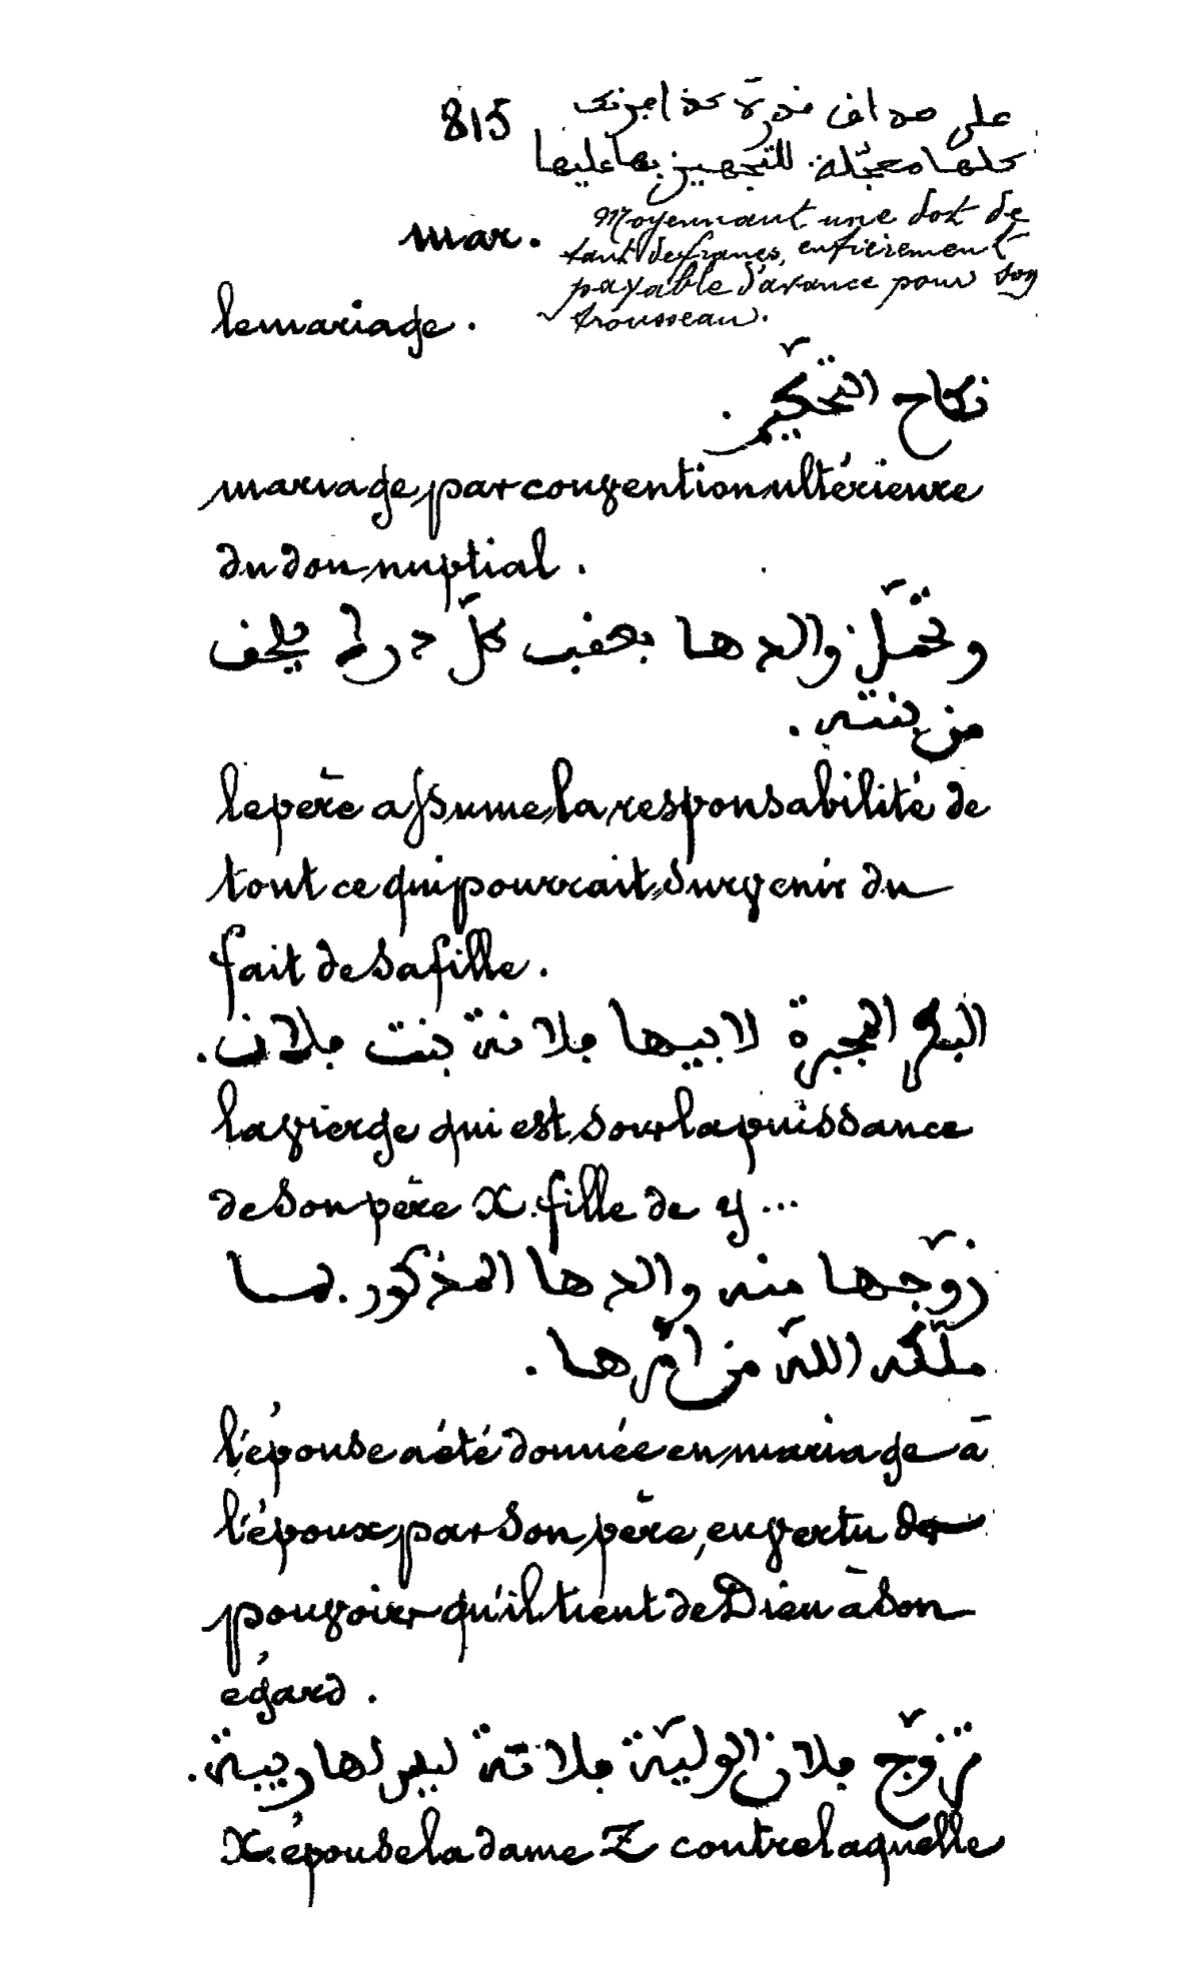 815
على صداق قدره كذا افرنك
كلها معجّلة للتجهيز بها عليها
mar.
Moyennant une dot de
tant de francs, entièrement
payable d'avance pour son
trousseau.
le mariage.
نكاح التحكيم.
mariage par convention ultérieure
du don nuptial.
وتحمّل والدها بعقب كلّ درك يلحف
من بنته.
le père assume la responsabilité de
tout ce qui pourrait survenir du
fait de sa fille.
البكر المجبرة لابيها فلانة بنت فلان.
la vierge qui est sous la puissance
de son père X. fille de y...
زوّجها منه والدها المذكور. لما
ملّكه اللّه من امرها.
l'épouse a été donnée en mariage à
l'époux par son père, en vertu du
pouvoir qu'il tient de Dieu à son
égard.
تزوّج فلان الوليّة فلانة ليس لها ريبة.
X. épouse la dame Z contre laquelle